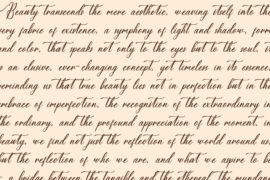 Beauty transcends the mere aesthetic, weaving itself into the
very fabric of existence, a symphony of light and shadow, form
and color, that speaks not only to the eyes but to the soul. It
is an elusive, ever-changing concept, yet timeless in its essence,
reminding us that true beauty lies not in perfection but in the
embrace of imperfection, the recognition of the extraordinary in
the ordinary, and the profound appreciation of the moment. In
beauty, we find not just the reflection of the world around us
but the reflection of who we are, and what we aspire to be
a bridge between the tangible and the ethereal, the mundane